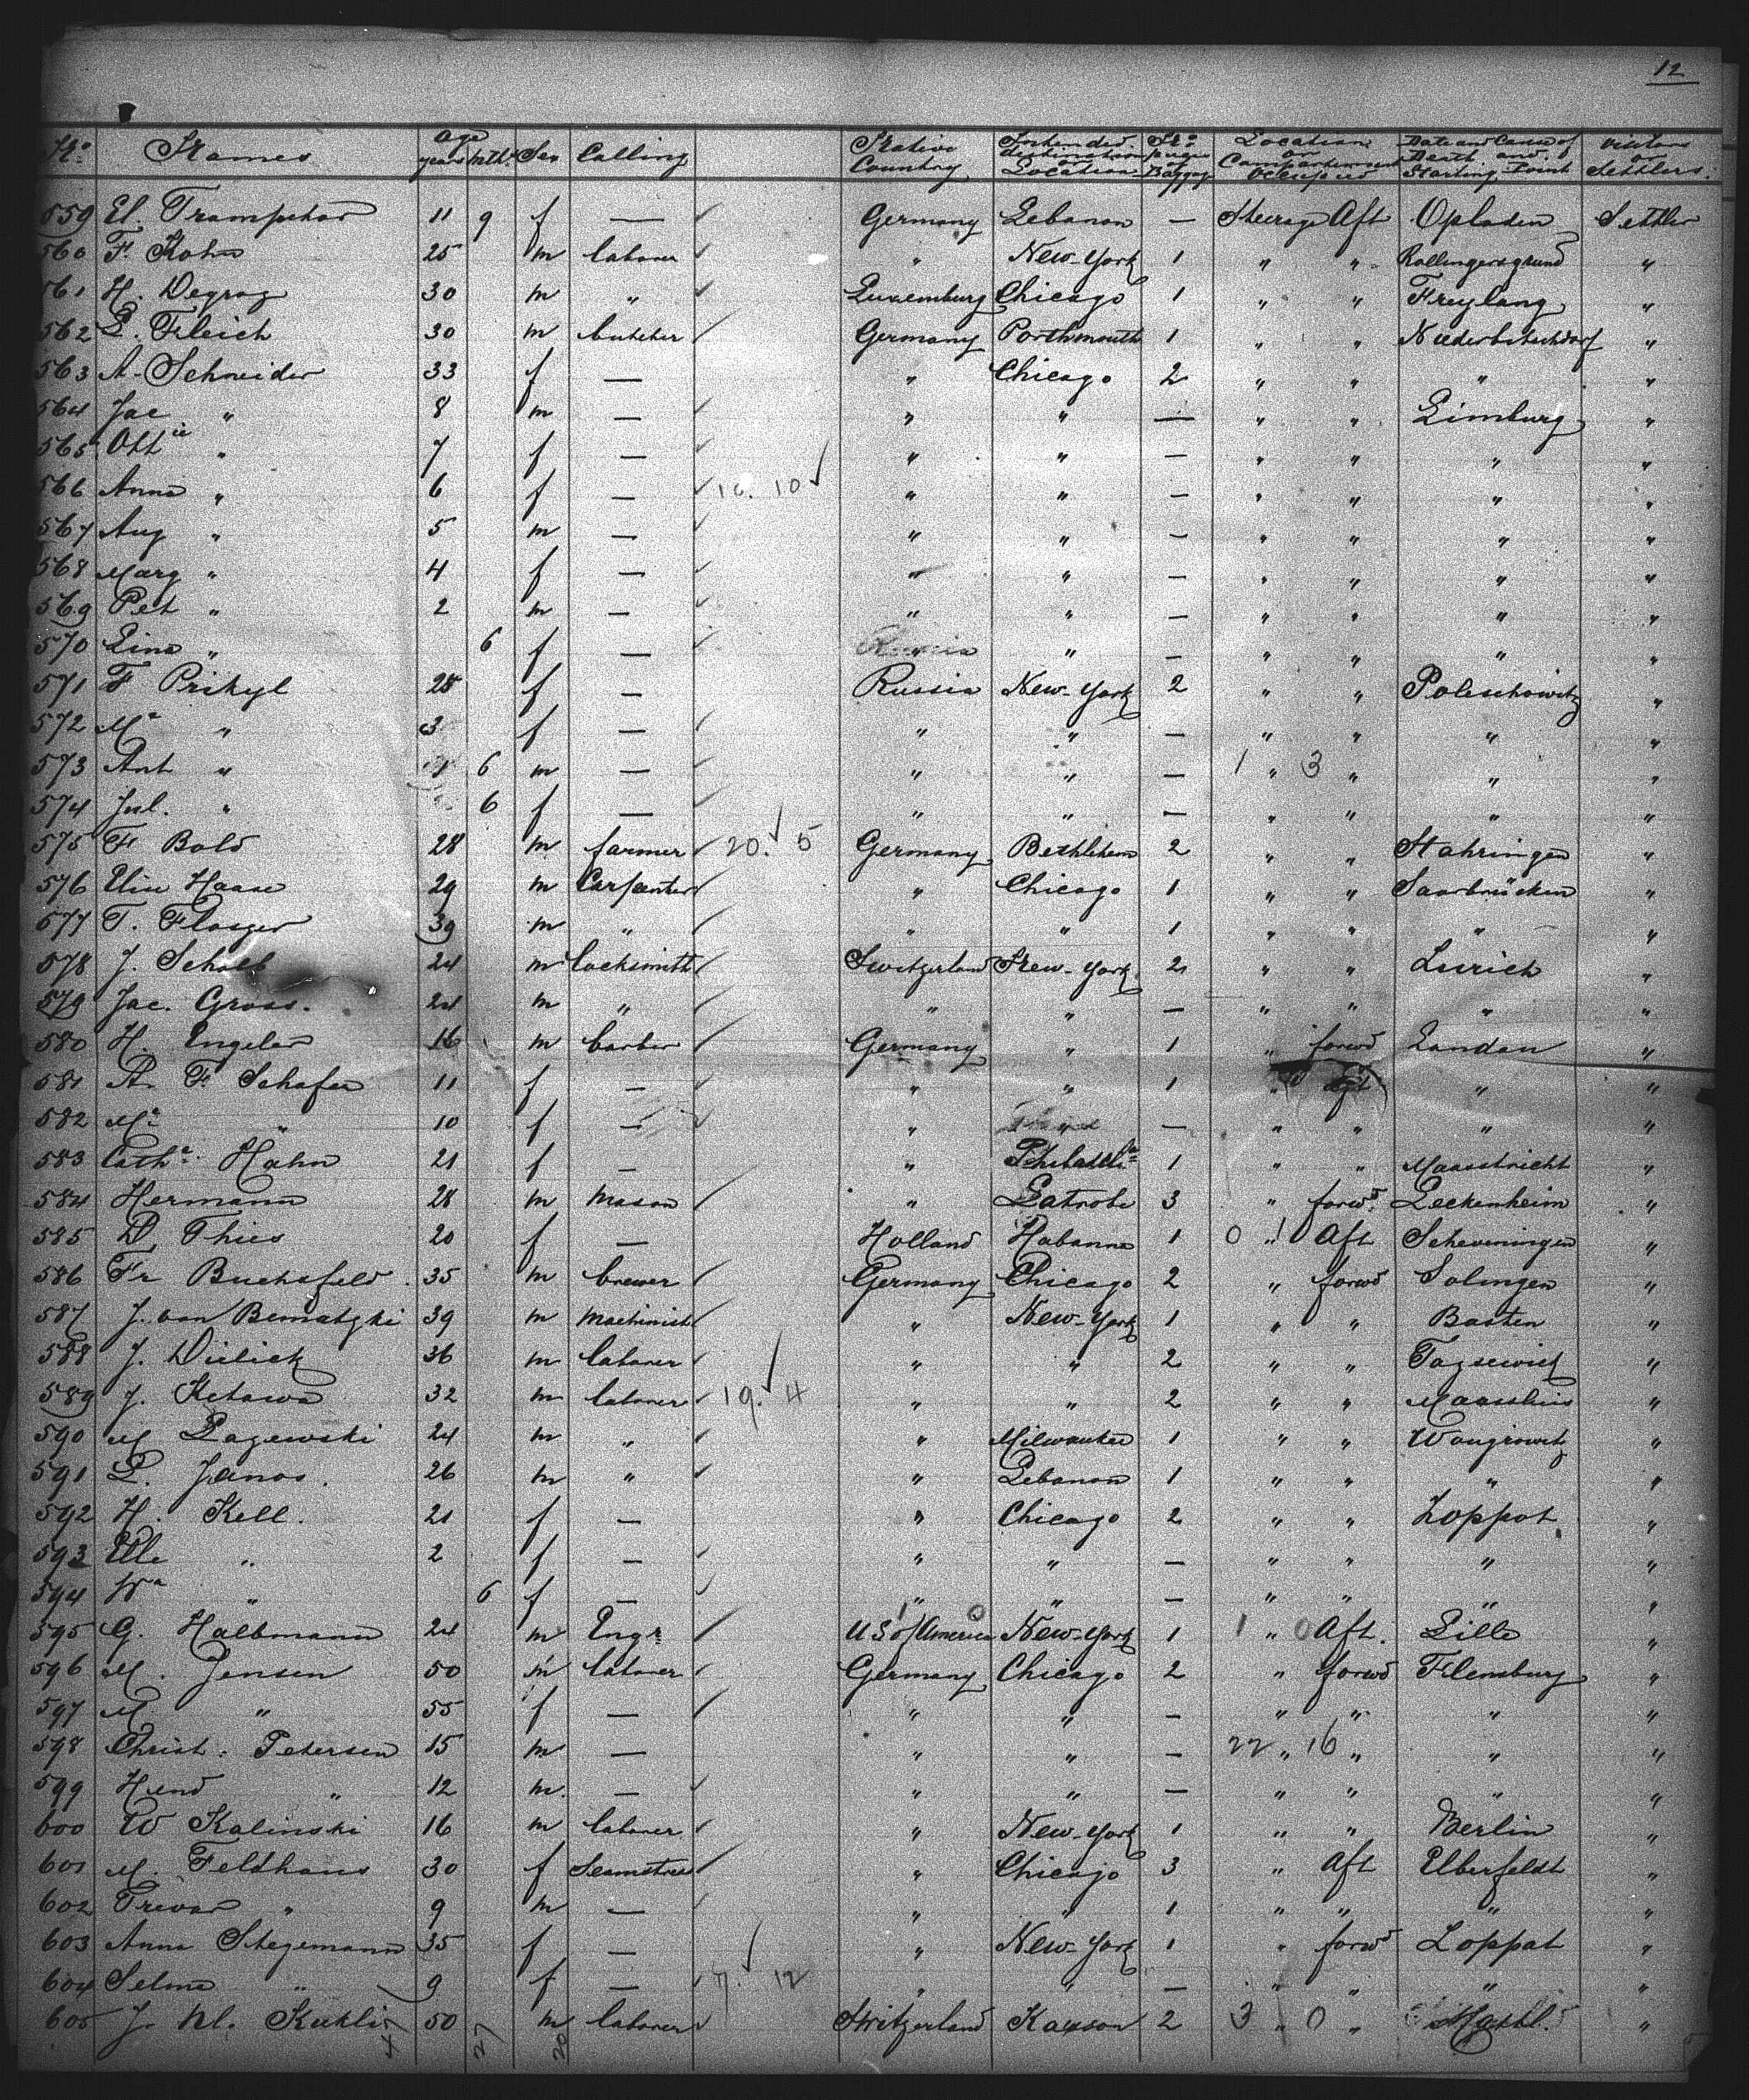 12
No Names Age years mths Sex Calling Native Country Intended destination or Location No pieces of Baggage Location or Compartement occupied Date and Cause of Death and Starting Point Visitors or Settlers
559 El. Trampehar 11 9 f — Germany Lebanon — Steerage Aft Opladen Settler
560 F. Kohn 25 m laborer " New-York 1 " " Rollingersgrund "
561 H. Degrag 30 m " Luxemburg Chicago 1 " " Freylang "
562 L. Fleich 30 m butcher Germany Porthmouth 1 " " "
563 A. Schneider 33 f — " Chicago 2 " " " "
564 Jac " 8 m — " " — " " Limburg "
565 Ottie " 7 f — " " — " " " "
566 Anna " 6 f — 10 " " — " " " "
567 Aug " 5 m — " " — " " " "
568 Marg " 4 f — " " — " " " "
569 Pet " 2 m — " " — " " " "
570 Lina " 6 f — " " — " " " "
571 F Prikyl 25 f — Russia New-York 2 " " Poleschowitz "
572 Ma " 3 f — " " — " " " "
573 Ant " 1 6 m — " " — 1 " 3 " " "
574 Jul. " 6 f — " " — " " " "
575 F Bold 28 m farmer 20. 5 Germany Bethlehem 2 " " Stahringen "
576 Haase 29 m Carpenter " Chicago 1 " " Saarbrücken "
577 T. Flasger 39 m " " " 1 " " " "
578 J. Scholl 24 m locksmith Switzerland New-York 2 " " Zurich "
579 Jac. Gross. 24 m " " " — " " " "
580 H. Engelar 16 m barber Germany " 1 " forwd Landau "
581 A. F Schafer 11 f — " " 1 " aft " "
582 Ma " 10 f — " " — " " " "
583 Cathe. Hahn 21 f — " Philadelia 1 " " Maastricht "
584 Hermann 28 m mason " Latrobe 3 " forwd. Leckenheim "
585 D Thies 20 f — Holland Habanna 1 0 " 1 Aft Scheveningen "
586 Fr Buchsfeld 35 m brewer Germany Chicago 2 " forwd Solingen "
587 J. van Bematzki 39 m machinist " New-York 1 " " Basten "
588 J. Dielick 36 m laborer " " 2 " " "
589 J. Ketawa 32 m laborer 19. 4 " " 2 " " Maassluis "
590 M Lagewski 24 m " " Milwaukee 1 " " Wongrowitz "
591 L. Janos. 26 m " " Lebanon 1 " " " "
592 H. Kell. 21 f — " Chicago 2 " " Zoppot "
593 Elle " 2 f — " " — " " " "
594 Wa " 6 f — " " — " " " "
595 G. Halbmann 24 m Engr U S of America New-York 1 1 " 0 Aft. Lille "
596 M. Jensen 50 m laborer Germany Chicago 2 " forwd Flensburg "
597 M. " 55 f — " " — " " " "
598 Christ. Petersen 15 m — " " — 22 " 16 " " "
599 Hend " 12 m. — " " — " " " "
600 W Kalinski 16 m laborer " New-York 1 " " Berlin "
601 M. Feldhaus 30 f Seamstress " Chicago 3 " Aft Elberfeldt "
602 Trevar " 9 m — " " 1 " " " "
603 Anna Stegemann 35 f — " New-York 1 " forwd Zoppat "
604 Selma " 9 f — 7. 12 " " — " " " "
605 J. Nl. Kukli 50 m laborer Switzerland Kayson 2 3 " 0 " "
27 20